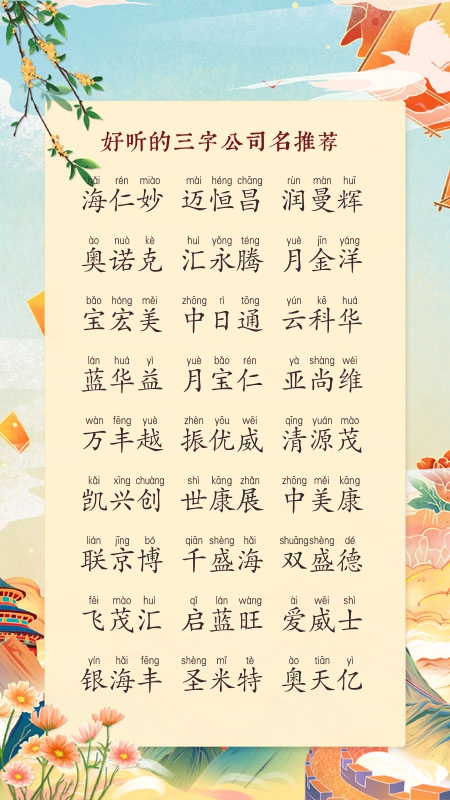 好听的三字公司名推荐
hǎi rén miào mài héng chāng rùn màn huī
海仁妙 迈恒昌 润曼辉
ào nuò kè huì yǒng téng yuè jīn yáng
奥诺克 汇永腾 月金洋
bǎo hóng měi zhōng rì tōng yún kē huá
宝宏美 中日通 云科华
lán huá yì yuè bǎo rén yà shàng wéi
蓝华益 月宝仁 亚尚维
wàn fēng yuè zhèn yōu wēi qīng yuán mào
万丰越 振优威 清源茂
kǎi xīng chuàng shì kāng zhǎn zhōng měi kāng
凯兴创 世康展 中美康
lián jīng bó qiān shèng hǎi shuāng shèng dé
联京博 千盛海 双盛德
fēi mào huì qǐ lán wàng ài wēi shì
飞茂汇 启蓝旺 爱威士
yín hǎi fēng shèng mǐ tè ào tiān yì
银海丰 圣米特 奥天亿